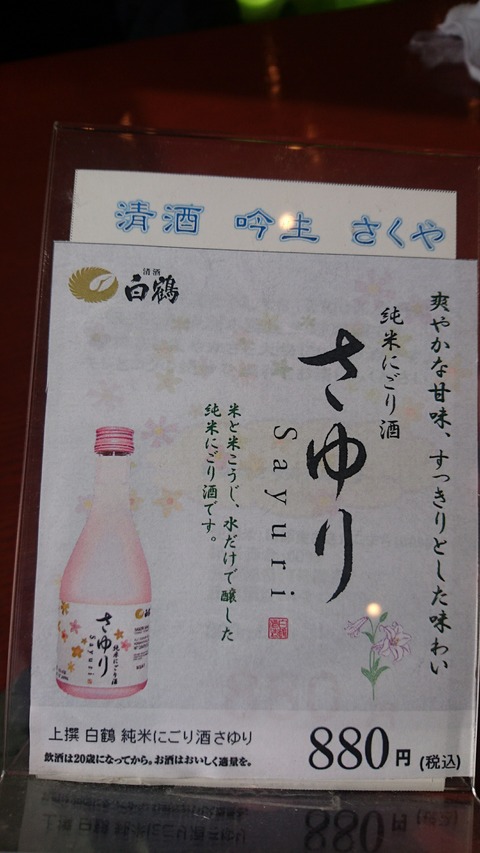 清酒 吟生 さくや
清酒
白鶴
爽やかな甘味、すっきりとした味わい
純米にごり酒
さゆり
Sayuri
米と米こうじ、水だけで醸した
純米にごり酒です。
白鶴
純米にごり酒
さゆり
Sayuri
上撰 白鶴 純米にごり酒さゆり
飲酒は20歳になってから。お酒はおいしく適量を。
880円(税込)